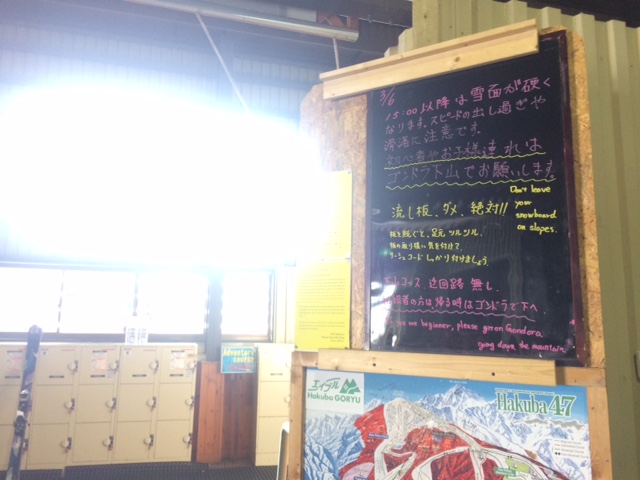 3/6
15:00以降は雪面が硬く
なります。スピードの出し過ぎや
滑落に注意です。
初心者やお子様連れは
ゴンドラ下山でお願いします。
流し板、ダメ、絶対!!
Don't leave
your
snowboard
on slopes.
板を脱ぐと、足元ツルツル、
板の取り扱い気を付けて、
リーシュコードしっかり付けましょう。
下山コース、迂回路無し、
初級者の方は帰る時はゴンドラで下へ
beginner, please get on Gondora
going down the mountain.
エイブル
Hakuba GORYU
Hakuba 47
Adventure